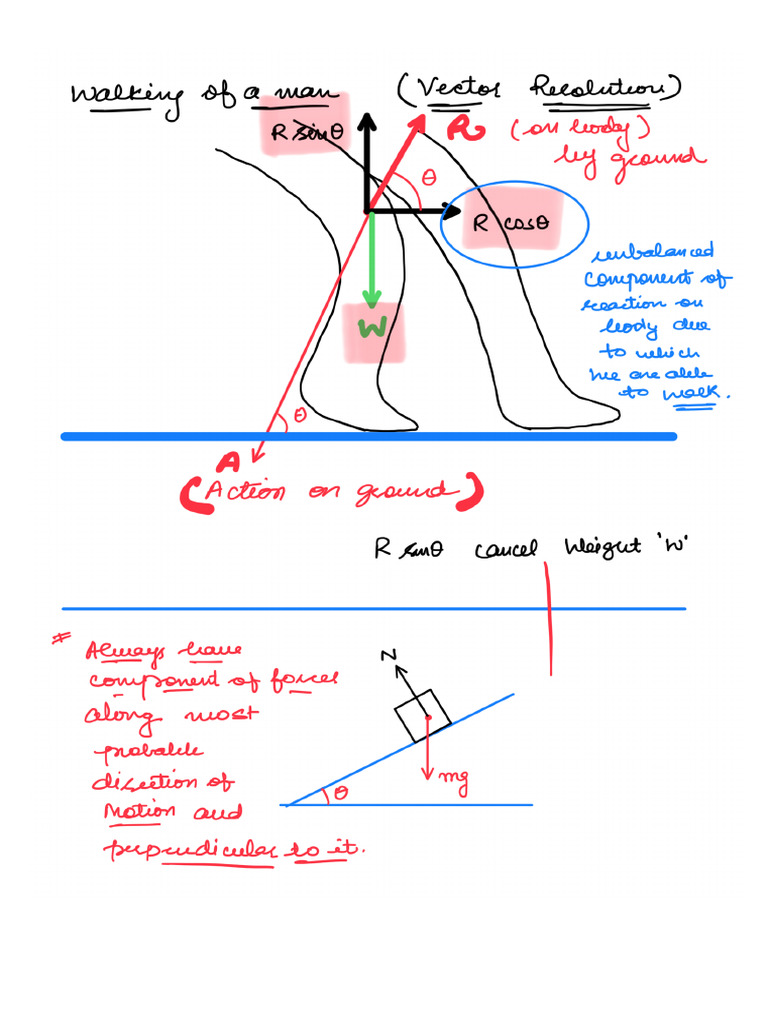 Walking of a man (Vector Resolution)
R sinθ
R (on body)
by ground
θ
R cosθ
unbalanced
component of
reaction on
body due
to which
we are able
to walk.
W
θ
A
(Action on ground)
R sinθ cancel Weight 'W'
# Always have
component of forces
along most
probable
direction of
Motion and
perpendicular to it.
N
mg
θ